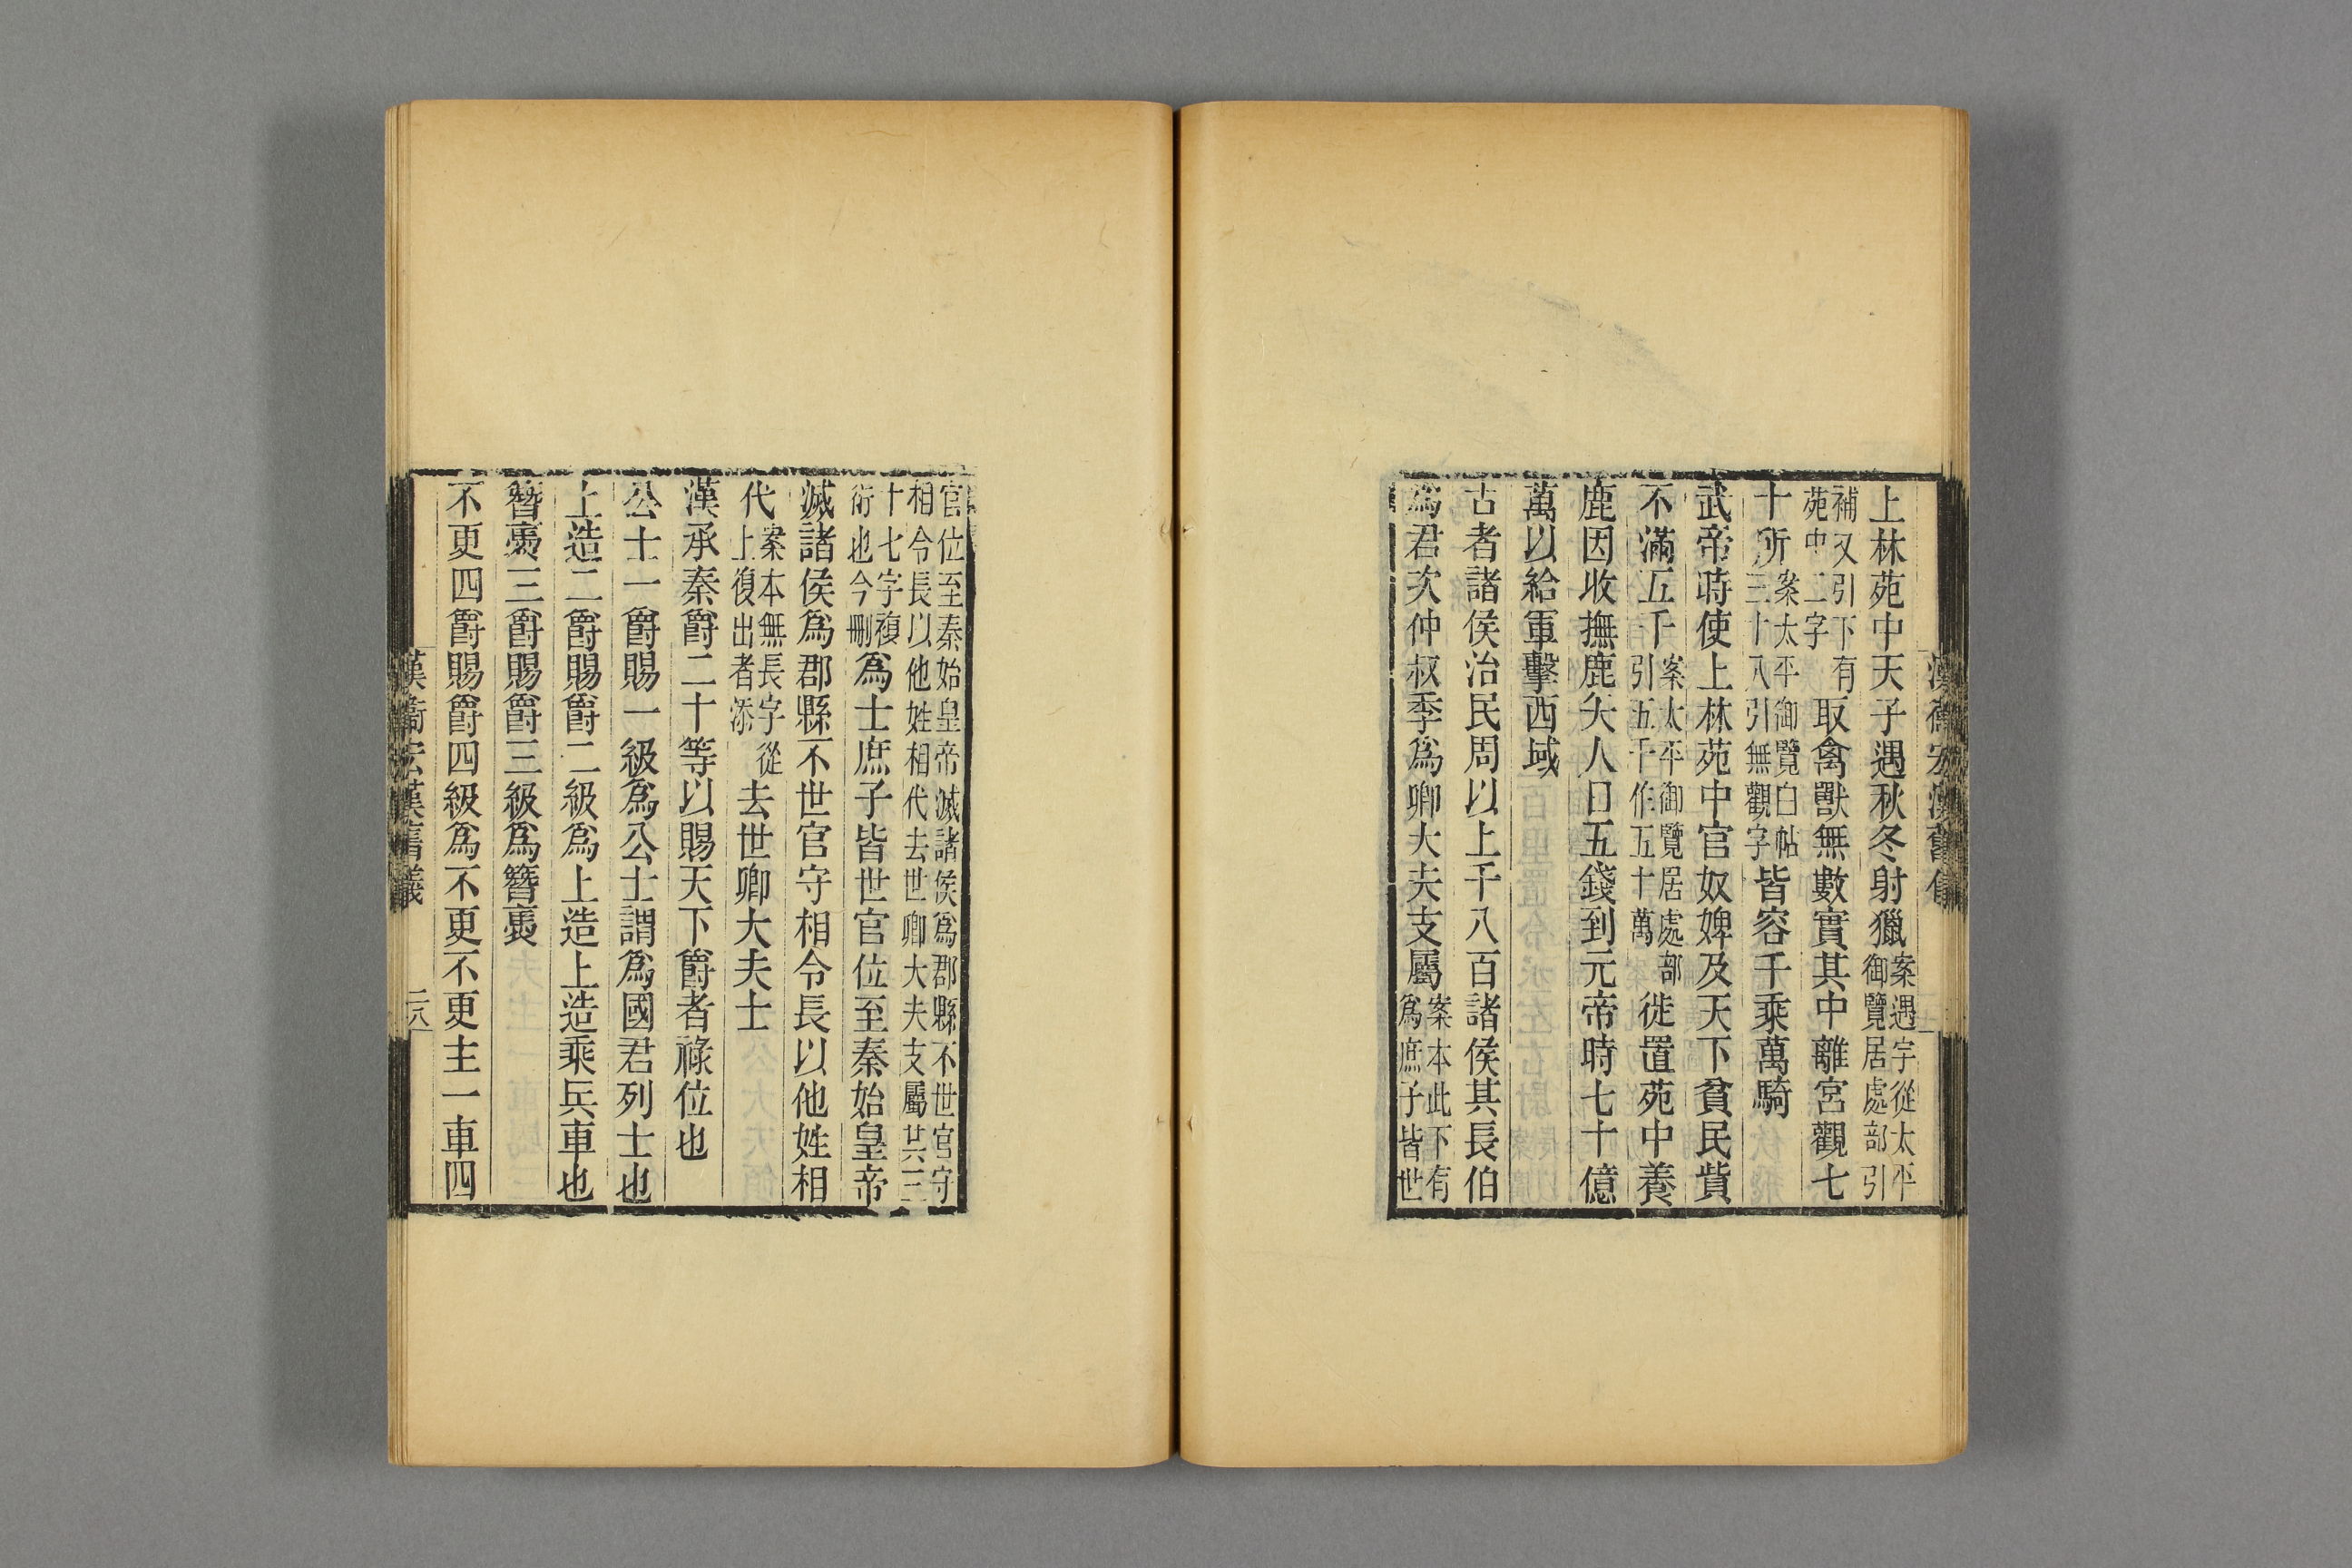 漢衛宏漢舊儀
上林苑中天子遇秋冬射獵案遇字從太平御覽居處部引
補又引下有苑中二字取禽獸無數實其中離宮觀七
十所案太平御覽白帖三十八引無觀字皆容千乘萬騎
武帝時使上林苑中官奴婢及天下貧民貲
不滿五千案太平御覽居處部引五千作五十萬徙置苑中養
鹿因收撫鹿矢人日五錢到元帝時七十億
萬以給軍擊西域
古者諸侯治民周以上千八百諸侯其長伯
爲君次仲叔季爲卿大夫支屬案本此下有爲庶子皆世
官位至秦始皇帝滅諸侯爲郡縣不世官守相令長以他姓相代去世卿大夫支屬共三
十七字複衍也今刪爲士庶子皆世官位至秦始皇帝
滅諸侯爲郡縣不世官守相令長以他姓相
代案本無長字從上復出者添去世卿大夫士
漢承秦爵二十等以賜天下爵者祿位也
公士一爵賜一級爲公士謂爲國君列士也
上造二爵賜爵二級爲上造上造乘兵車也
簪褭三爵賜爵三級爲簪褭
不更四爵賜爵四級爲不更不更主一車四
漢衛宏漢舊儀 二八